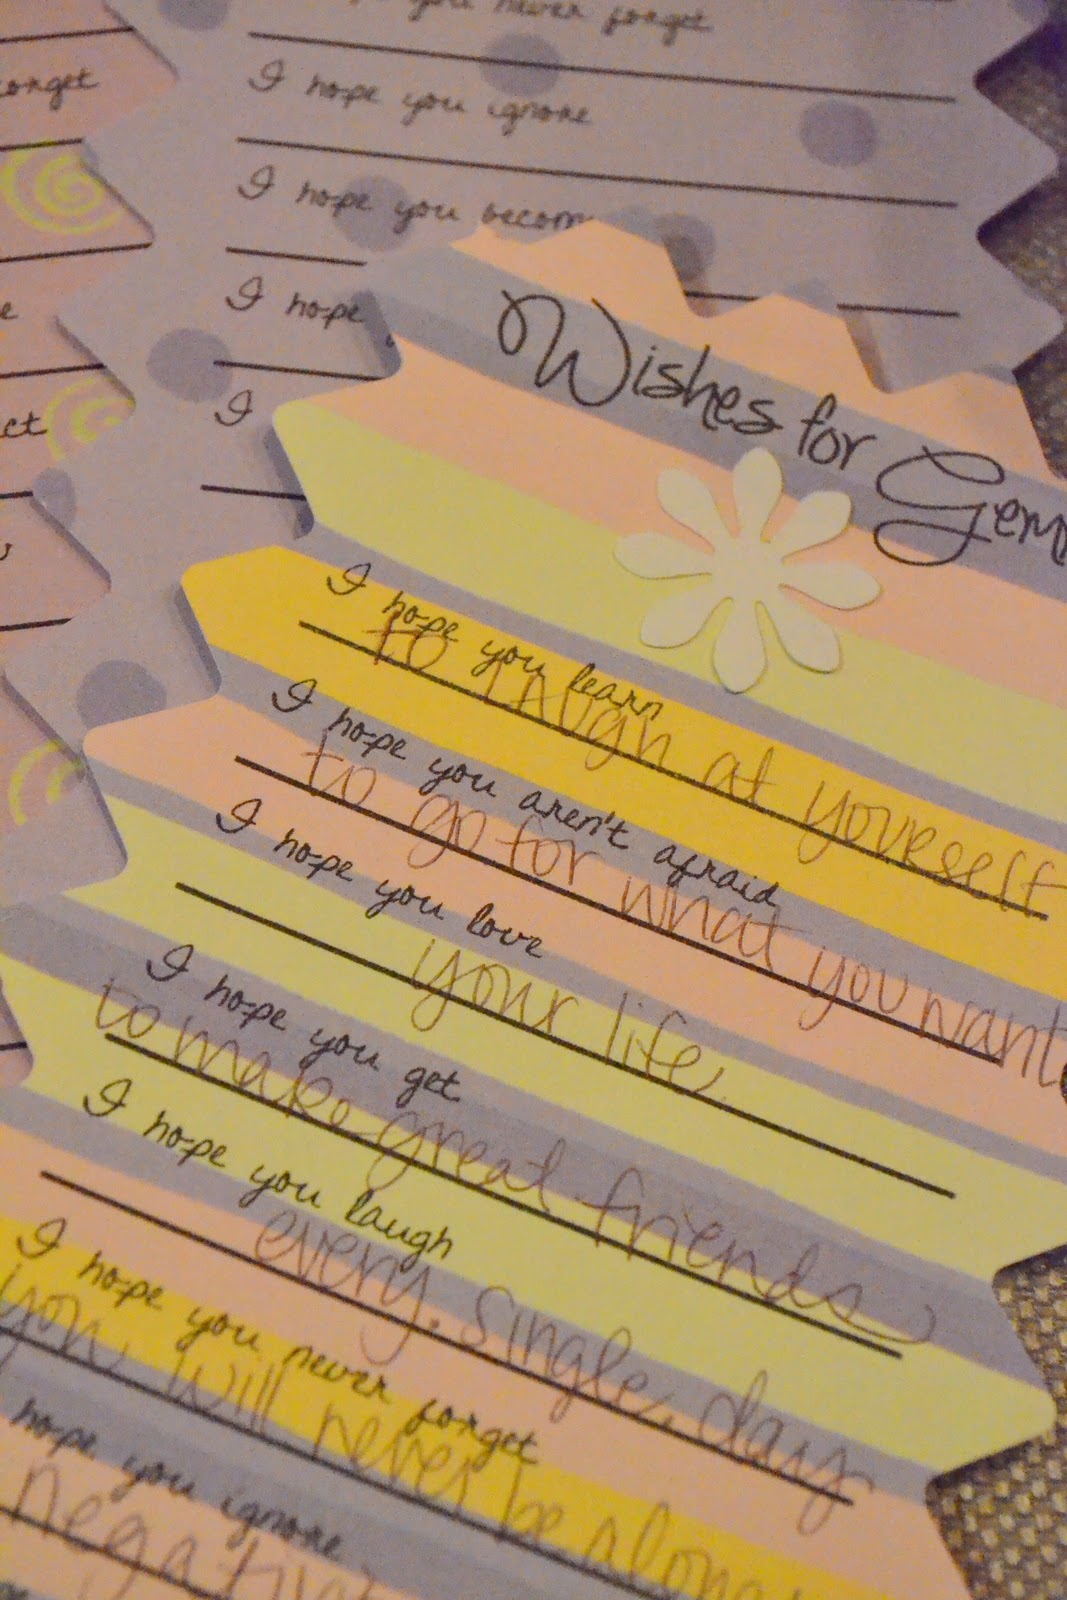 you never forget
I hope you ignore
I hope you
I hope
I
Wishes for
I hope you learn
to laugh at yourself
I hope you aren't afraid
to go for what you want
I hope you love
your life
I hope you get
to make great friends
I hope you laugh
every. single. day
I hope you never forget
you will never be alone
hope you ignore